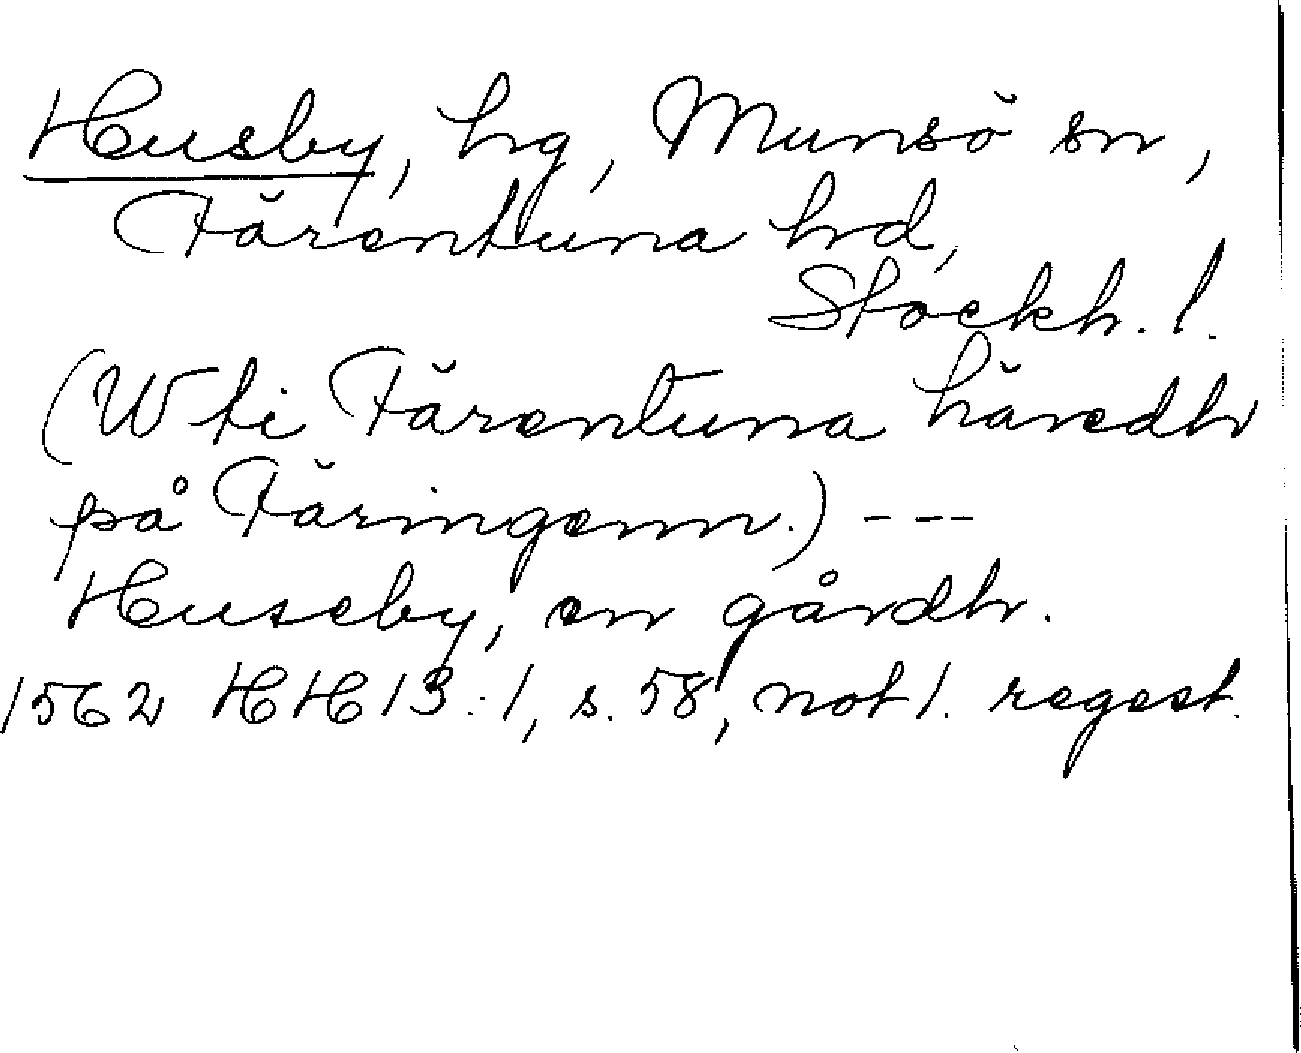 Husby, hg, Munsö sn,
Färentuna hd,
Stockh. l.
(W ti Färentuna häredh
på Färingenn.) ---
Huseby, en gårdh.
1562 HH 13:1, s. 58, not 1. regest.